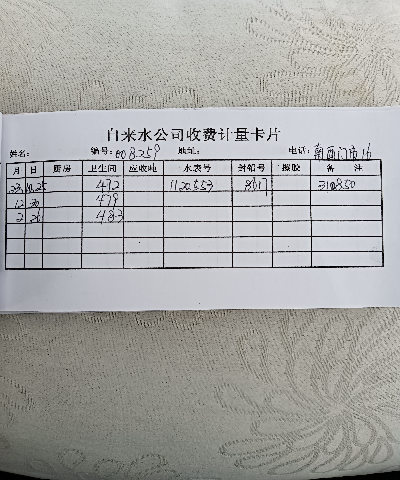 自来水公司收费计量卡片
姓名: 编号:008259 地址: 电话:南西门市16
月 日 厨房 卫生间 应收吨 水表号 封铅号 撥胶 备 注
23.10.25 472 1120553 8617
12 30 479
2 26 483